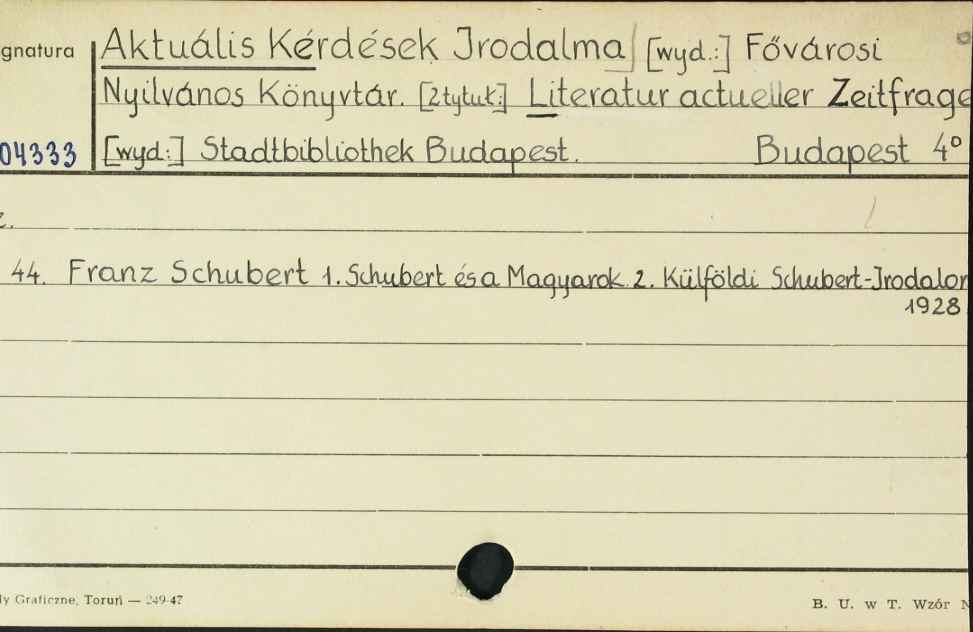 gnatura Aktuális Kérdések Irodalma [wyd.:] Fővárosi
Nyilvános Könyvtár. [2tytuł:] Literatur actueller Zeitfrage
04333 [wyd:] Stadtbibliothek Budapest. Budapest 4°
z.
44. Franz Schubert 1. Schubert és a Magyarok 2. Külföldi Schubert-Irodalom
1928
ly Graficzne, Toruń — 249-47
B. U. w T. Wzór N